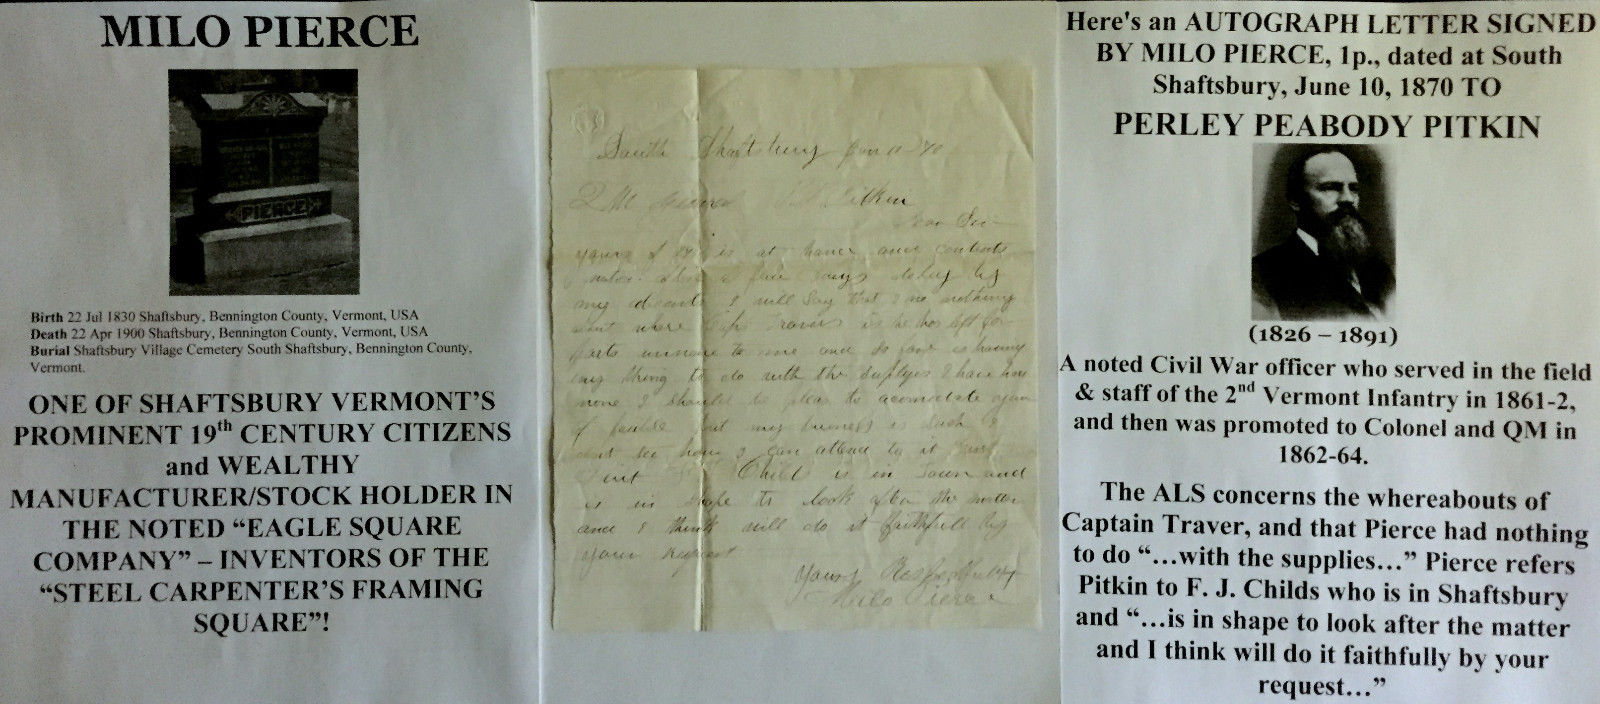 MILO PIERCE
PIERCE
Birth 22 Jul 1830 Shaftsbury, Bennington County, Vermont, USA
Death 22 Apr 1900 Shaftsbury, Bennington County, Vermont, USA
Burial Shaftsbury Village Cemetery South Shaftsbury, Bennington County,
Vermont.
ONE OF SHAFTSBURY VERMONT'S
PROMINENT 19th CENTURY CITIZENS
and WEALTHY
MANUFACTURER/STOCK HOLDER IN
THE NOTED “EAGLE SQUARE
COMPANY” – INVENTORS OF THE
“STEEL CARPENTER'S FRAMING
SQUARE”!
South Shaftsbury
Pitkin
Dear Sir
yours of is at hand and contents
a few days delay by
my I will say that I no nothing
where Capt Traver is he has left for
parts to me and so far as having
any thing to do with the I have
none I should be to acomodate you
if but my business is such I
not see how I can attend to it
Child is in Town and
is in shape to look after the matter
and I think will do it faithfull by
your request
Yours Respectfully
Milo Pierce
Here's an AUTOGRAPH LETTER SIGNED
BY MILO PIERCE, 1p., dated at South
Shaftsbury, June 10, 1870 TO
PERLEY PEABODY PITKIN
(1826 – 1891)
A noted Civil War officer who served in the field
& staff of the 2nd Vermont Infantry in 1861-2,
and then was promoted to Colonel and QM in
1862-64.
The ALS concerns the whereabouts of
Captain Traver, and that Pierce had nothing
to do “…with the supplies…” Pierce refers
Pitkin to F. J. Childs who is in Shaftsbury
and “…is in shape to look after the matter
and I think will do it faithfully by your
request…”